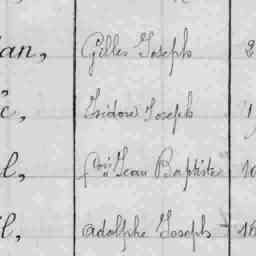 an, Gilles Joseph 2
c, Isidore Joseph 1
l, fçois Jean Baptiste 10
il, Adolphe Joseph 16